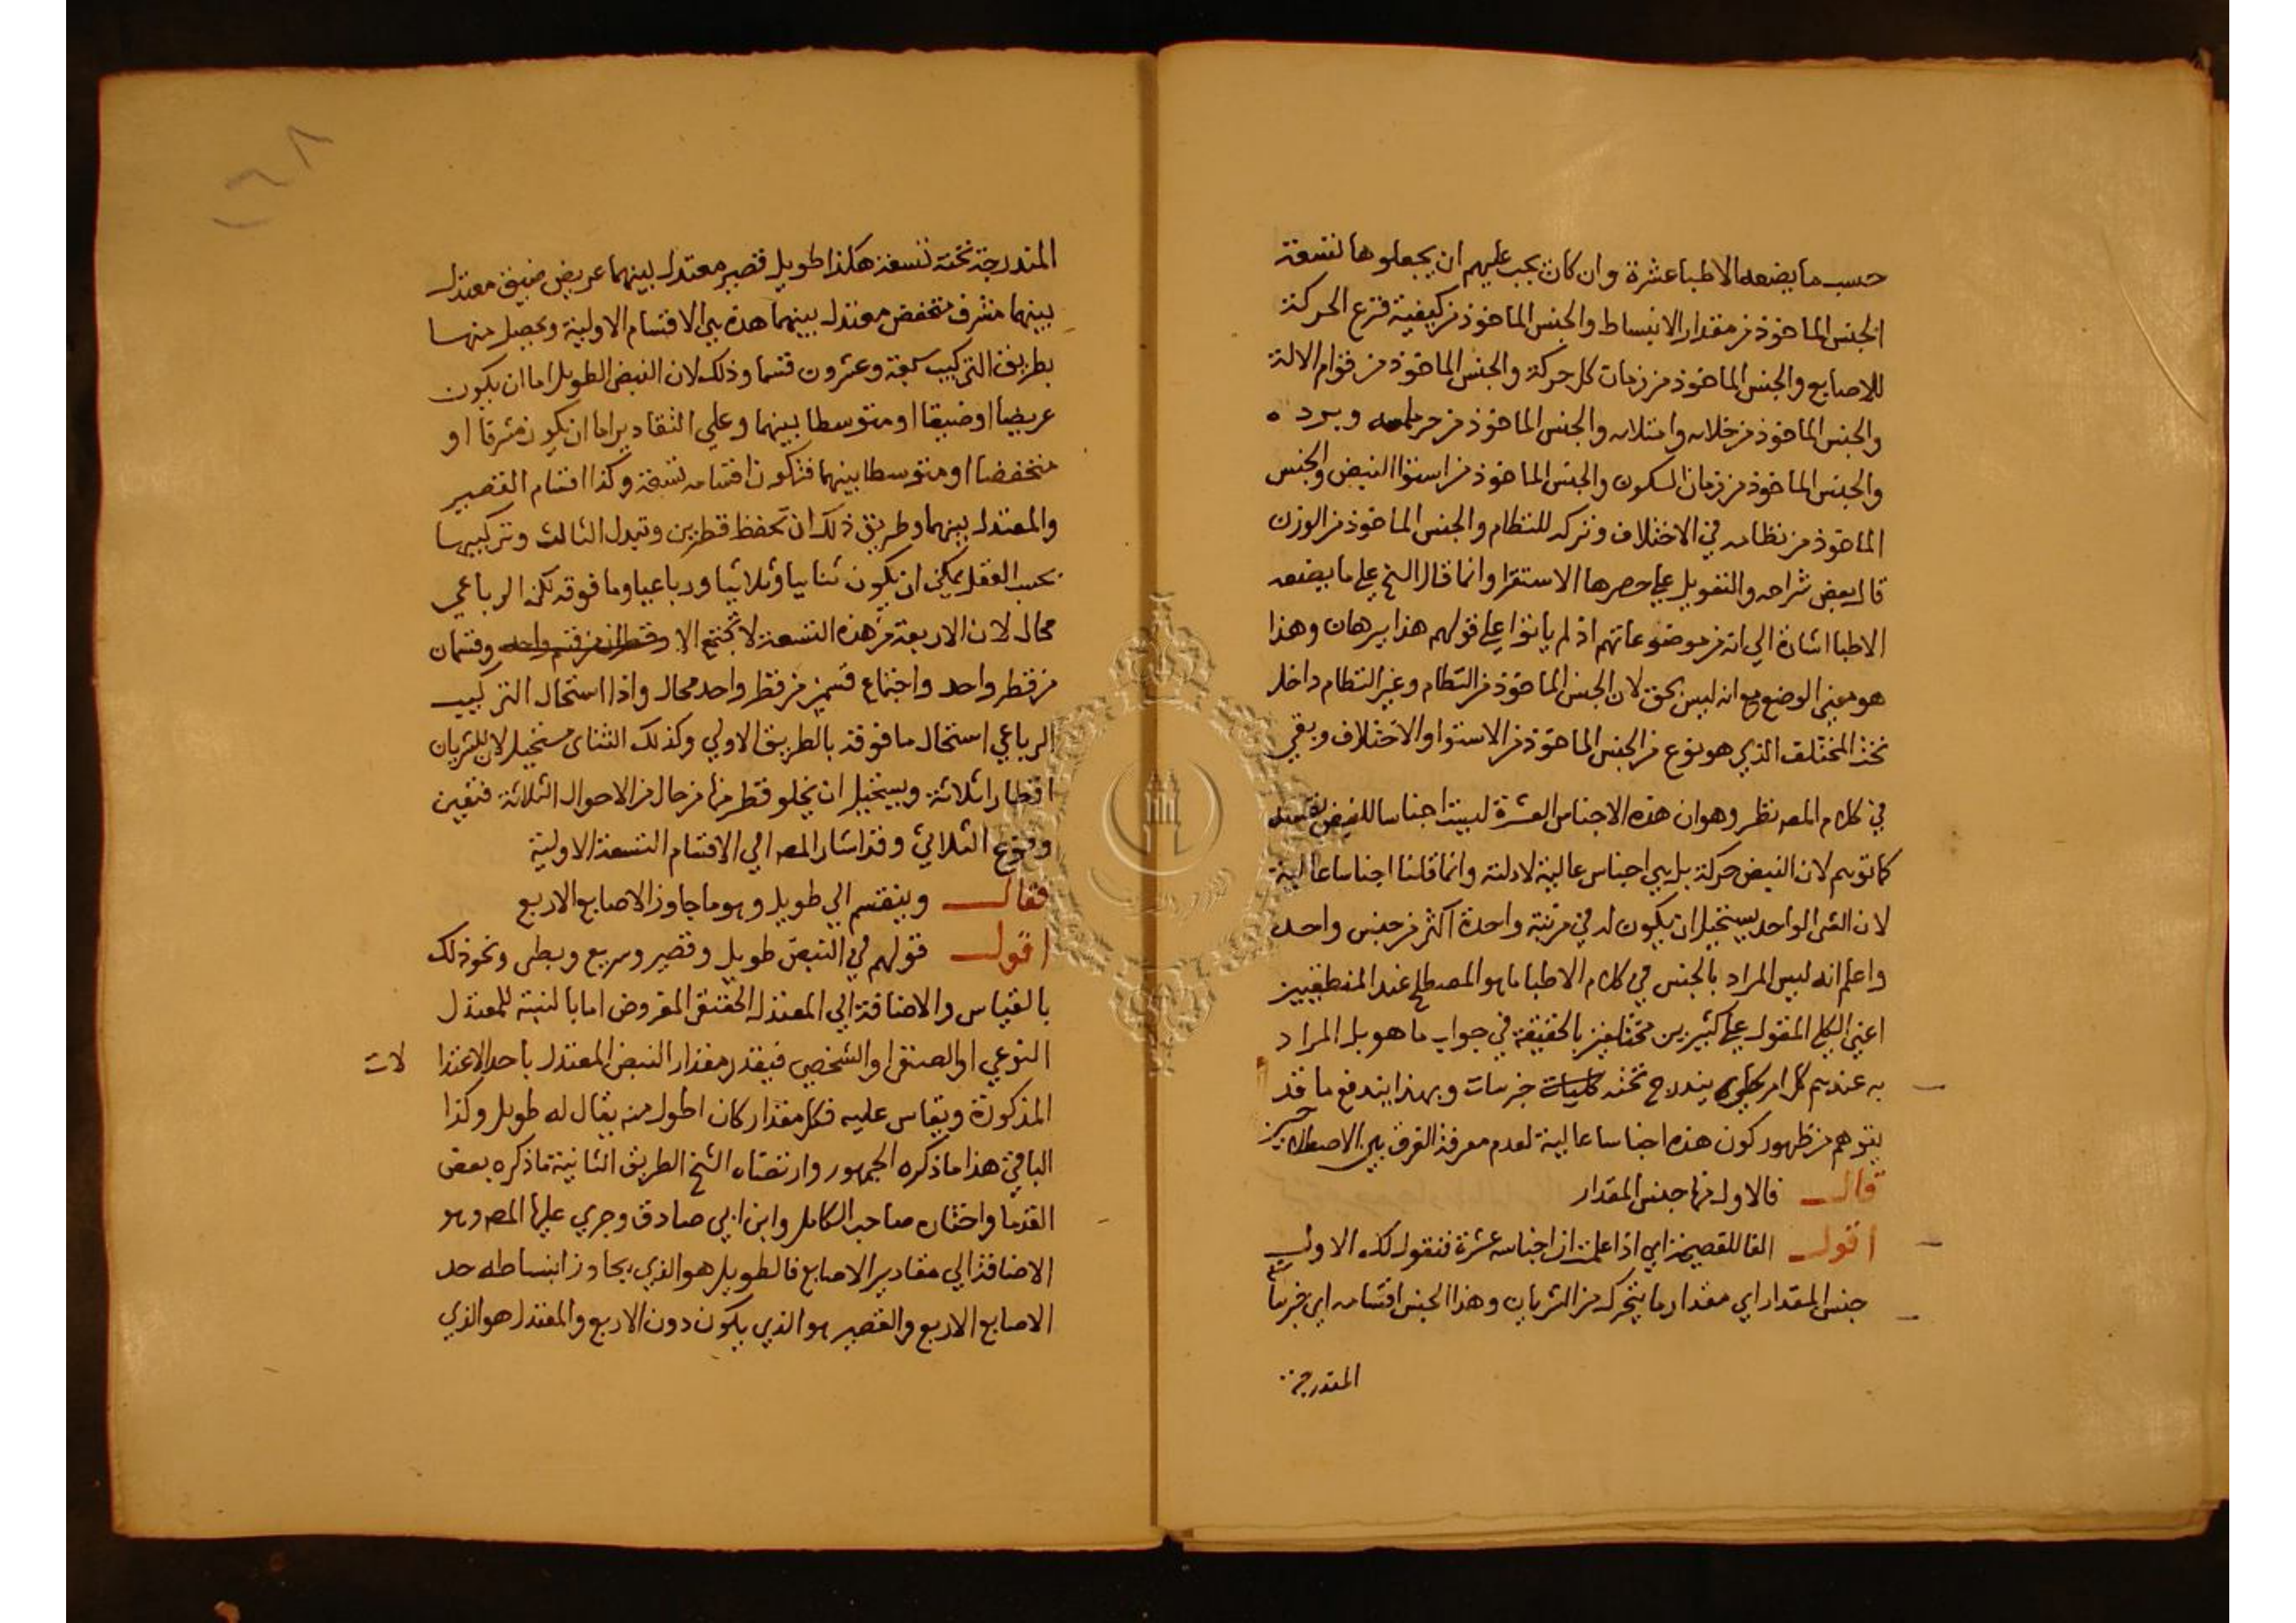 حسب ما يضعه الاطبا عشرة وان كان يجب عليهم ان يجعلوها تسعة
الجنس الماخوذ من مقدار الانبساط والجنس الماخوذ من كيفية قرع الحركة
للاصابع والجنس الماخوذ من زمان كل حركة والجنس الماخوذ من قوام الالة
والجنس الماخوذ من خلائه وامتلائه والجنس الماخوذ من حر ملمسه وبرده
والجنس الماخوذ من زمان السكون والجنس الماخوذ من استوا النبض والجنس
الماخوذ من نظامه في الاختلاف وتركه للنظام والجنس الماخوذ من الوزن
قال بعض شراحه والتعويل علي حصرها الاستقرا وانما قال الشيخ علي ما يضعه
الاطبا اشارة الي انه من موضوعاتهم اذ لم ياتوا علي قولهم هذا ببرهان وهذا
هو معني الوضع مع انه ليس بحق لان الجنس الماخوذ من النظام وغير النظام داخل
تحت المختلف الذي هو نوع من الجنس الماخوذ من الاستوا والاختلاف وبقي
في كلام المصه نظر وهو ان هذه الاجناس العشرة ليست اجناسا للنبض نفسه
كما توهم لان النبض حركة بل هي اجناس عالية لادلته وانما قلنا اجناسا عالية
لان الشي الواحد يستحيل ان يكون له في مرتبة واحدة اكثر من جنس واحد
واعلم انه ليس المراد بالجنس في كلام الاطبا ما هو المصطلح عند المنطقيين
اعني الكلي المقول علي كثيرين مختلفين بالحقيقة في جواب ما هو بل المراد
به عندهم كل امر كلي يندرج تحته كليات جزيات وبهذا يندفع ما قد
يتوهم من ظهور كون هذه اجناسا عالية لعدم معرفة الفرق بين الاصطلاحين
قال فالاول منها جنس المقدار
اقول الفا للفصيحة اي اذا علمت ان اجناسه عشرة فنقول لك الاول
جنس المقدار اي مقدار ما يتحرك من الشريان وهذا الجنس اقسامه اي جزياته
المندرجة
المندرجة تحته تسعة هكذا طويل قصير معتدل بينهما عريض ضيق معتدل
بينهما مشرف منخفض معتدل بينهما هذه هي الاقسام الاولية ويحصل منها
بطريق التركيب سبعة وعشرون قسما وذلك لان النبض الطويل اما ان يكون
عريضا او ضيقا او متوسطا بينهما وعلي التقادير اما ان يكون مشرفا او
منخفضا او متوسطا بينهما فتكون اقسامه تسعة وكذا اقسام القصير
والمعتدل بينهما وطريق ذلك ان تحفظ قطرين وتبدل الثالث وتركيبها
بحسب العقل يمكن ان يكون ثنائيا وثلاثيا ورباعيا وما فوقه لكن الرباعي
محال لان الاربعة من هذه التسعة لا تجتمع الا وقسمان
من قطر واحد واجتماع قسمين من قطر واحد محال واذا استحال التركيب
الرباعي استحال ما فوقه بالطريق الاولي وكذلك الثنائي مستحيل لان للشريان
اقطارا ثلاثة ويستحيل ان يخلو قطر منها من حال من الاحوال الثلاثة فتعين
وقوع الثلاثي وقد اشار المصه الي الاقسام التسعة الاولية
فقال وينقسم الي طويل وهو ما جاوز الاصابع الاربع
اقول قولهم في النبض طويل وقصير وسريع وبطي ونحو ذلك
بالقياس والاضافة الي المعتدل الحقيقي المفروض اما بالنسبة للمعتدل
النوعي او الصنفي او الشخصي فيقدر مقدار النبض المعتدل باحد الاعتدا لات
المذكورة ويقاس عليه فكل مقدار كان اطول منه يقال له طويل وكذا
الباقي هذا ما ذكره الجمهور وارتضاه الشيخ الطريق الثانية ما ذكره بعض
القدما واختاره صاحب الكامل وابن ابي صادق وجري عليها المصه وهو
الاضافة الي مقادير الاصابع فالطويل هو الذي يجاوز انبساطه حد
الاصابع الاربع والقصير هو الذي يكون دون الاربع والمعتدل هو الذي